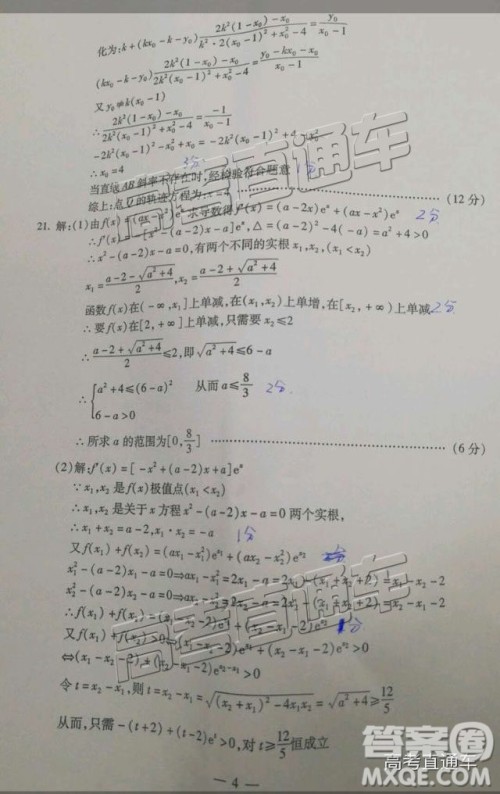 化为:k+(kx₀-k-y₀)\frac{2k²(1-x₀)-x₀}{k²·2(x₀-1)²+x₀²-4}=\frac{y₀}{x₀-1}
(kx₀-k-y₀)\frac{2k²(1-x₀)-x₀}{2k²(x₀-1)²+x₀²-4}=\frac{y₀-kx₀-x₀}{x₀-1}
又y₀≠k(x₀-1)
∴\frac{2k²(1-x₀)-x₀}{2k²(x₀-1)²+x₀²-4}=\frac{-1}{x₀-1}
-2k²(x₀-1)²-x₀²+x₀=-2k²(x₀-1)²+4-x₀²
∴x₀=4
当直线AB斜率不存在时,经检验符合题意
综上:点D的轨迹方程为:x=4 (12分)
21. 解:(1)由f(x)=(ax-x²)eˣ求导数得f′(x)=(a-2x)eˣ+(ax-x²)eˣ 2分
∴f′(x)=-[x²-(a-2)x-a]eˣ,△=(a-2)²-4(-a)=a²+4>0
∴x²-(a-2)x-a=0,有两个不同的实根x₁,x₂,(x₁<x₂)
x₁=\frac{a-2-\sqrt{a²+4}}{2},x₂=\frac{a-2+\sqrt{a²+4}}{2}
函数f(x)在(-∞,x₁]上单减,在(x₁,x₂)上单增,在[x₂,+∞)上单减. 2分
∴要f(x)在[2,+∞]上单减,只需要x₂≤2
∴\frac{a-2+\sqrt{a²+4}}{2}≤2,即\sqrt{a²+4}≤6-a
∴{a²+4≤(6-a)² 从而a≤\frac{8}{3} 2分
6-a>0
∴所求a的范围为[0,\frac{8}{3}] (6分)
(2)解:f′(x)=[-x²+(a-2)x+a]eˣ
∵x₁,x₂是f(x)极值点(x₁<x₂)
∴x₁,x₂是关于x方程x²-(a-2)x-a=0两个实根,
∴x₁+x₂=a-2,x₁·x₂=-a 1分
又f(x₁)+f(x₂)=(ax₁-x₁²)e^{x₁}+(ax₂-x₂²)e^{x₂}
x₁²-(a-2)x₁-a=0⇒ax₁-x₁²=2x₁-a=2x₁-(x₁+x₂+2)=x₁-x₂-2
x₂²-(a-2)x₂-a=0⇒ax₂-x₂²=2x₂-a=2x₂-(x₁+x₂+2)=x₂-x₁-2
∴f(x₁)+f(x₂)=(x₁-x₂-2)e^{x₁}+(x₂-x₁-2)e^{x₂}
又f(x₁)+f(x₂)>0⇔(x₁-x₂-2)e^{x₁}+(x₂-x₁-2)e^{x₂}>0 1分
⇔(x₁-x₂-2)+(x₂-x₁-2)e^{x₂-x₁}>0
令t=x₂-x₁,则t=x₂-x₁=\sqrt{(x₂+x₁)²-4x₁x₂}=\sqrt{a²+4}≥\frac{12}{5}
从而,只需-(t+2)+(t-2)eᵗ>0,对t≥\frac{12}{5}恒成立
— 4 —
高考直通车
高考直通车
高考直通车
答案圈
MXQE.COM